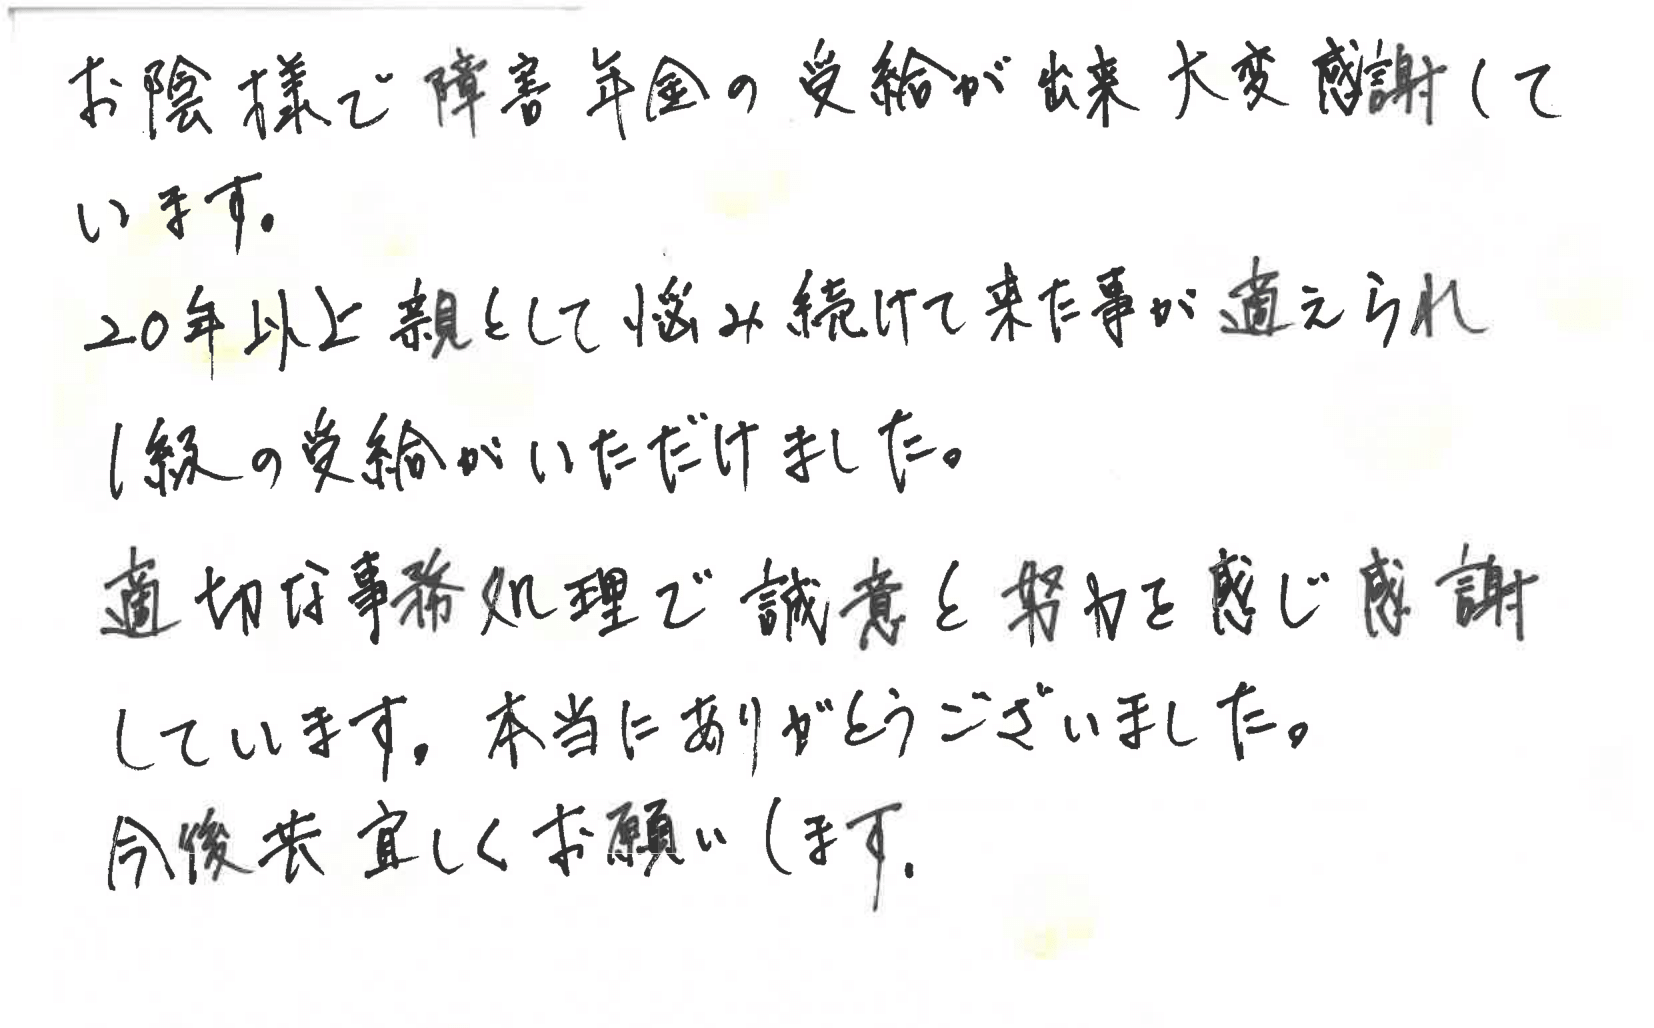 お陰様で障害年金の受給が出来大変感謝して
います。
20年以上親として悩み続けて来た事が適えられ
1級の受給がいただけました。
適切な事務処理で誠意と努力を感じ感謝
しています。本当にありがとうございました。
今後共宜しくお願いします.